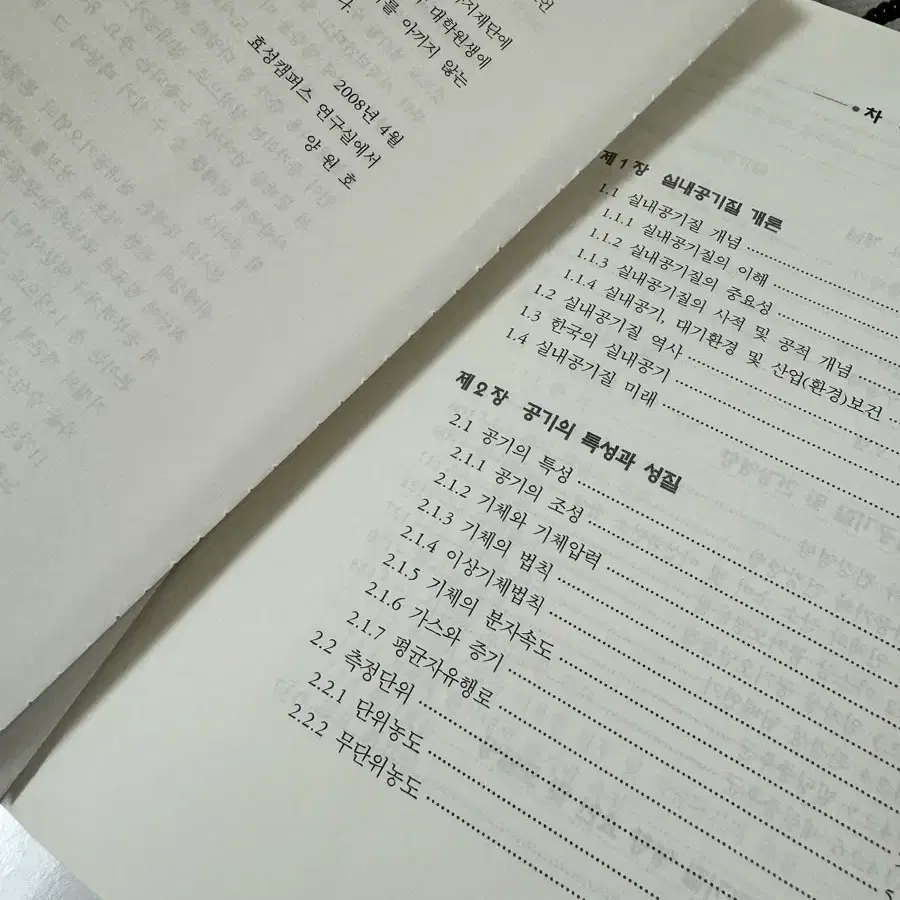 지재단에
대학원생에
를 아끼지 않는
다.
2008년 4월
효성캠퍼스 연구실에서
양 원 호
차
제1장 실내공기질 개론
1.1 실내공기질 개념
1.1.1 실내공기질의 이해
1.1.2 실내공기질의 중요성
1.1.3 실내공기질의 사적 및 공적 개념
1.1.4 실내공기, 대기환경 및 산업(환경)보건
1.2 실내공기질 역사
1.3 한국의 실내공기
1.4 실내공기질 미래
제2장 공기의 특성과 성질
2.1 공기의 특성
2.1.1 공기의 조성
2.1.2 기체와 기체압력
2.1.3 기체의 법칙
2.1.4 이상기체법칙
2.1.5 기체의 분자속도
2.1.6 가스와 증기
2.1.7 평균자유행로
2.2 측정단위
2.2.1 단위농도
2.2.2 무단위농도